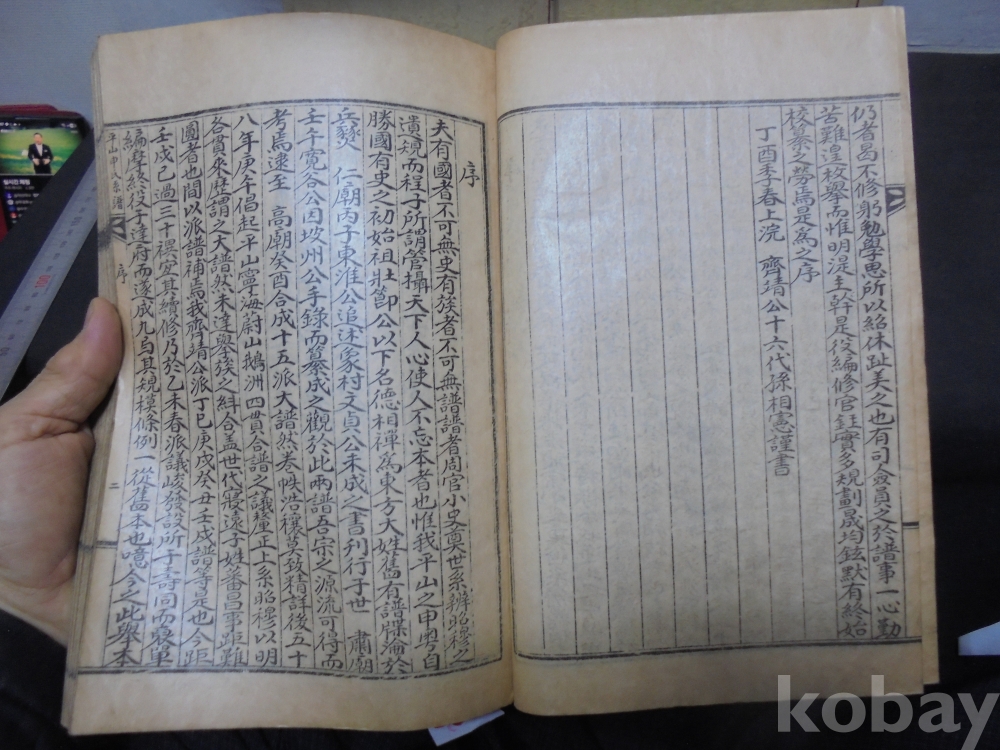 仍者曷不修躬勉學思所以紹休趾美之也有司僉員之於譜事一心勤
苦難遑枚擧而惟明湜主幹是役編修官鈺實多規劃晟均鉉默有終始
校纂之勞焉是爲之序
丁酉季春上浣 齊靖公十六代孫相憲謹書
序
夫有國者不可無史有族者不可無譜譜者周官小史奠世系辨昭穆之
遺規而程子所謂管攝天下人心使人不忘本者也惟我平山之申粤自
勝國有史之初始祖壯節公以下名德相禪爲東方大姓舊有譜牒淪於
兵燹 仁廟丙子東淮公追述象村文貞公未成之書刊行于世 肅廟
壬午寬谷公因坡州公手錄而纂成之觀於此兩譜吾宗之源流可得而
考焉逮至 高廟癸酉合成十五派大譜然卷帙浩穰莫致精詳後五十
八年庚午倡起平山寧海蔚山鵝洲四貫合譜之議釐正上系昭穆以明
各貫來歷謂之大譜然未達擧族之糾合盖世代寢遠子姓番昌事距難
圖者也間以派譜補焉我齊靖公派丁巳庚戌癸丑壬戌譜等是也今距
壬戌已過三十禩宜其續修乃於乙未春派議峻發設所于壽同而蒐單
編摩終役于達府而遂成九弓其規模條例一從舊本也噫今之此擧本
平山申氏系譜 序 二
kobay